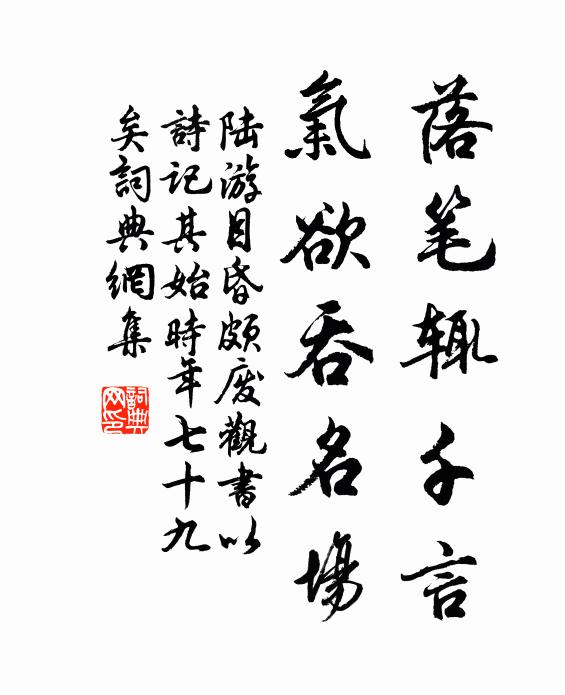 落笔辄千言
氣欲吞名場
陆游目昏頗废觀書以
詩記其始時年七十九
矣詞典網集
詞典网印